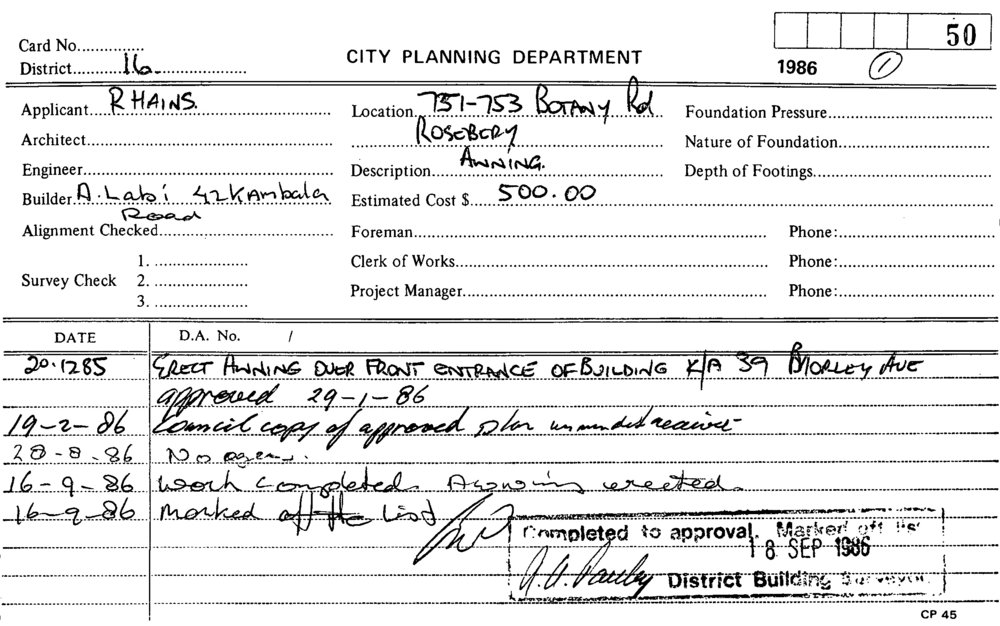 50
Card No...............
CITY PLANNING DEPARTMENT
District............16......................
1986 (1)
Applicant...R HAINS.
Location...751-753 BOTANY Rd
Foundation Pressure
ROSEBERY
Architect
Nature of Foundation
Engineer
Description...AWNING.
Depth of Footings
Builder A. Labi 42 Kambala
Estimated Cost $...500.00
Road
Alignment Checked
Foreman
Phone:
Survey Check
1.
Clerk of Works
Phone:
2.
3.
Project Manager
Phone:
DATE
D.A. No. /
20.1285 ERECT AWNING OVER FRONT ENTRANCE OF BUILDING K/A 39 MORLEY AVE
approved 29-1-86
19-2-86 Council copy of approved plan
28-8-86 No
16-9-86 Work completed. Awning erected.
16-9-86 Marked off the List
Completed to approval. Marked off list
18 SEP 1986
District Building Surveyor
CP 45